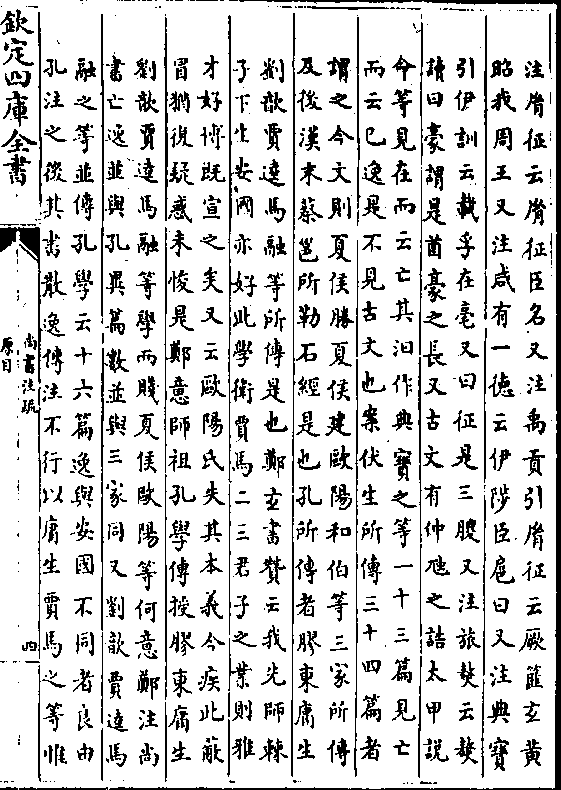 注胤征云胤征臣名又注禹貢引胤征云厥篚玄黄
昭我周王又注咸有一德云伊陟臣扈曰又注典寶
引伊訓云載孚在亳又曰征是三朡又注旅獒云獒
讀曰豪謂是酋豪之長又古文有仲虺之誥太甲説
命等見在而云亡其汩作典寶之等一十三篇見亡
而云已逸是不見古文也案伏生所傳三十四篇者
謂之今文則夏侯勝夏侯建歐陽和伯等三家所傳
及後漢末蔡邕所勒石經是也孔所傳者膠東庸生
劉歆賈逵馬融等所傳是也鄭玄書贊云我先師棘
子下生安國亦好此學衛賈馬二三君子之業則雅
才好博既宣之矣又云歐陽氏失其本義今疾此蔽
冒猶復疑惑未悛是鄭意師祖孔學傳授膠東庸生
劉歆賈逵馬融等學而賤夏侯歐陽等何意鄭注尚
書亡逸並與孔異篇數並與三家同又劉歆賈逵馬
融之等並傳孔學云十六篇逸與安國不同者良由
孔注之後其書散逸傳注不行以庸生賈馬之等惟
欽定四庫全書
尚書注疏
原目
四